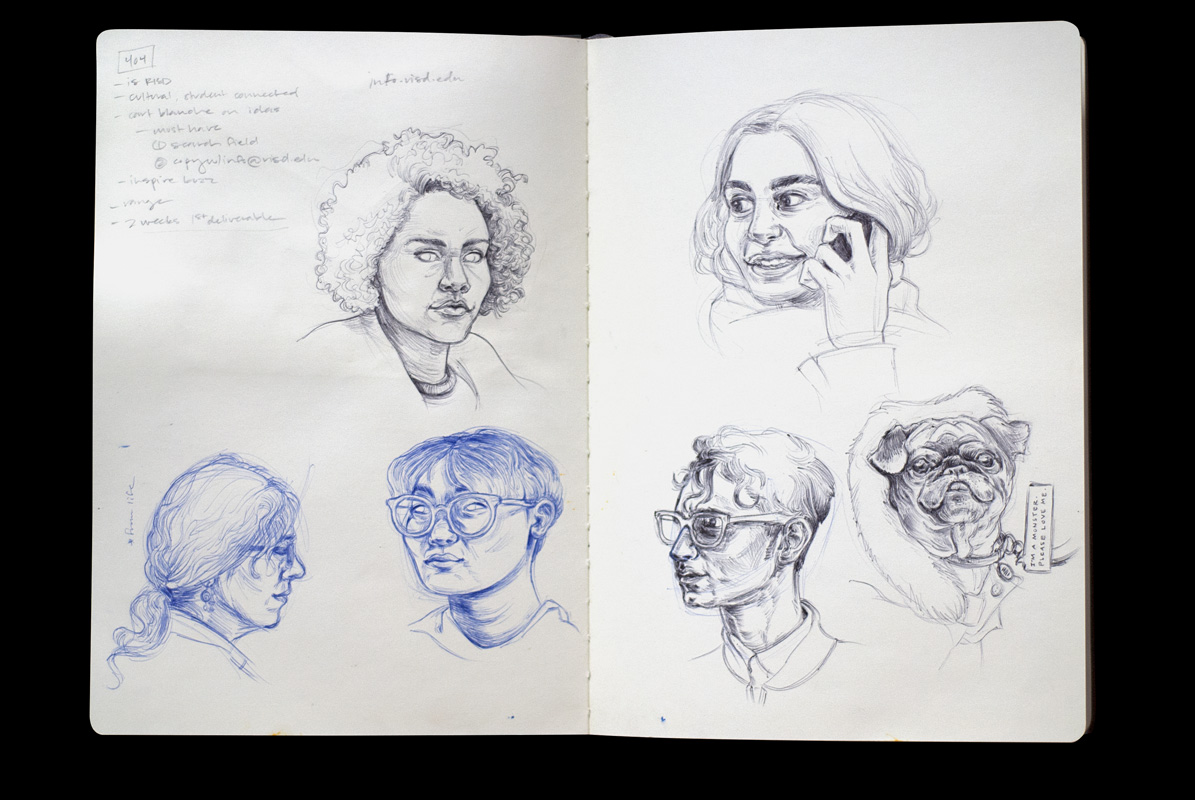 404
- is RISD
- cultural, student connected
- cart blanche on ideas
- must have
① search field
② copy,ul info@risd.edu
- inspire buzz
- range
- 2 weeks 1st deliverable
info.risd.edu
* from life
I'M A MONSTER.
PLEASE LOVE ME.